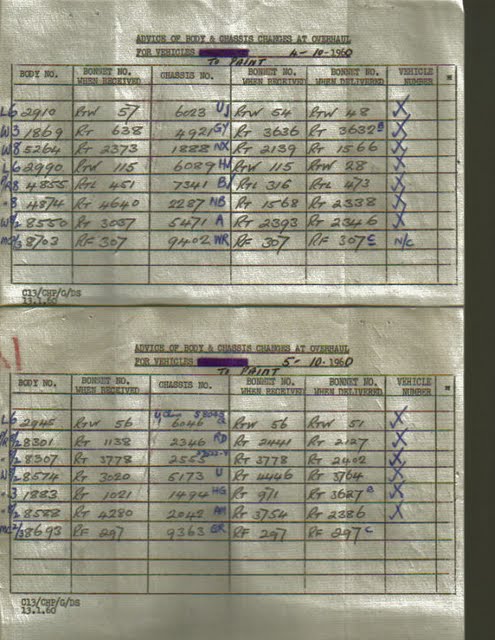 ADVICE OF BODY & CHASSIS CHANGES AT OVERHAUL
FOR VEHICLES 4-10-1960
TO PAINT
BODY NO. BONNET NO. WHEN RECEIVED CHASSIS NO. BONNET NO. WHEN RECEIVED BONNET NO. WHEN DELIVERED VEHICLE NUMBER *
L6 2910 RTW 57 6023 UJ RTW 54 RTW 48 X
W3 1869 RT 638 4921 GY RT 3636 RT 3632 B X
W8 5264 RT 2373 1888 NX RT 2139 RT 1566 X
L6 2990 RTW 115 6089 RTW 115 RTW 28 X
R8 4855 RTL 451 7341 RTL 316 RTL 473 X
"8 4874 RT 4640 2287 NB RT 1568 RT 2338 X
W8/2 8550 RT 3037 5471 A RT 2393 RT 2346 X
8703 RF 307 9402 WR RF 307 RF 307 C N/C
C13/CHP/G/DS
13.1.60
ADVICE OF BODY & CHASSIS CHANGES AT OVERHAUL
FOR VEHICLES 5-10-1960
TO PAINT
BODY NO. BONNET NO. WHEN RECEIVED CHASSIS NO. BONNET NO. WHEN RECEIVED BONNET NO. WHEN DELIVERED VEHICLE NUMBER *
L6 2945 RTW 56 6046 RTW 56 RTW 51 X
8301 RT 1138 2346 RD RT 2441 RT 2127 X
8307 RT 3778 2553 RT 3778 RT 2402 X
8574 RT 3020 5173 U RT 4446 RT 3764 X
"3 1883 RT 1021 1494 HG RT 911 RT 3627 B X
8588 RT 4280 2042 AM RT 3754 RT 2386 X
8693 RF 297 9363 GR RF 297 RF 297 C
C13/CHP/G/DS
13.1.60